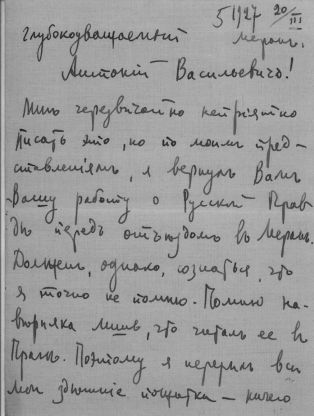 5 1927 20/III
Глубокоуважаемый Меранъ.
Антоній Васильевичъ!
Мнѣ чрезвычайно непріятно
писать это, но по моимъ пред-
ставленіямъ, я вернулъ Вамъ
Вашу работу о Русской Прав-
дѣ передъ отъѣздомъ въ Меранъ.
Долженъ, однако, сознаться, что
я точно не помню. Помню на-
вѣрняка лишь, что читалъ ее в
Прагѣ. Поэтому я перерылъ всѣ
мои здѣшніе пожитки — ничего